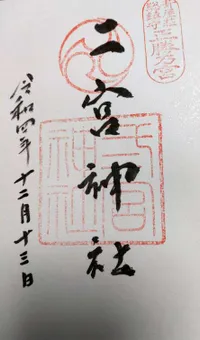 正勝乃宮
二宮神社
二宮
神社
令和四年十二月十三日